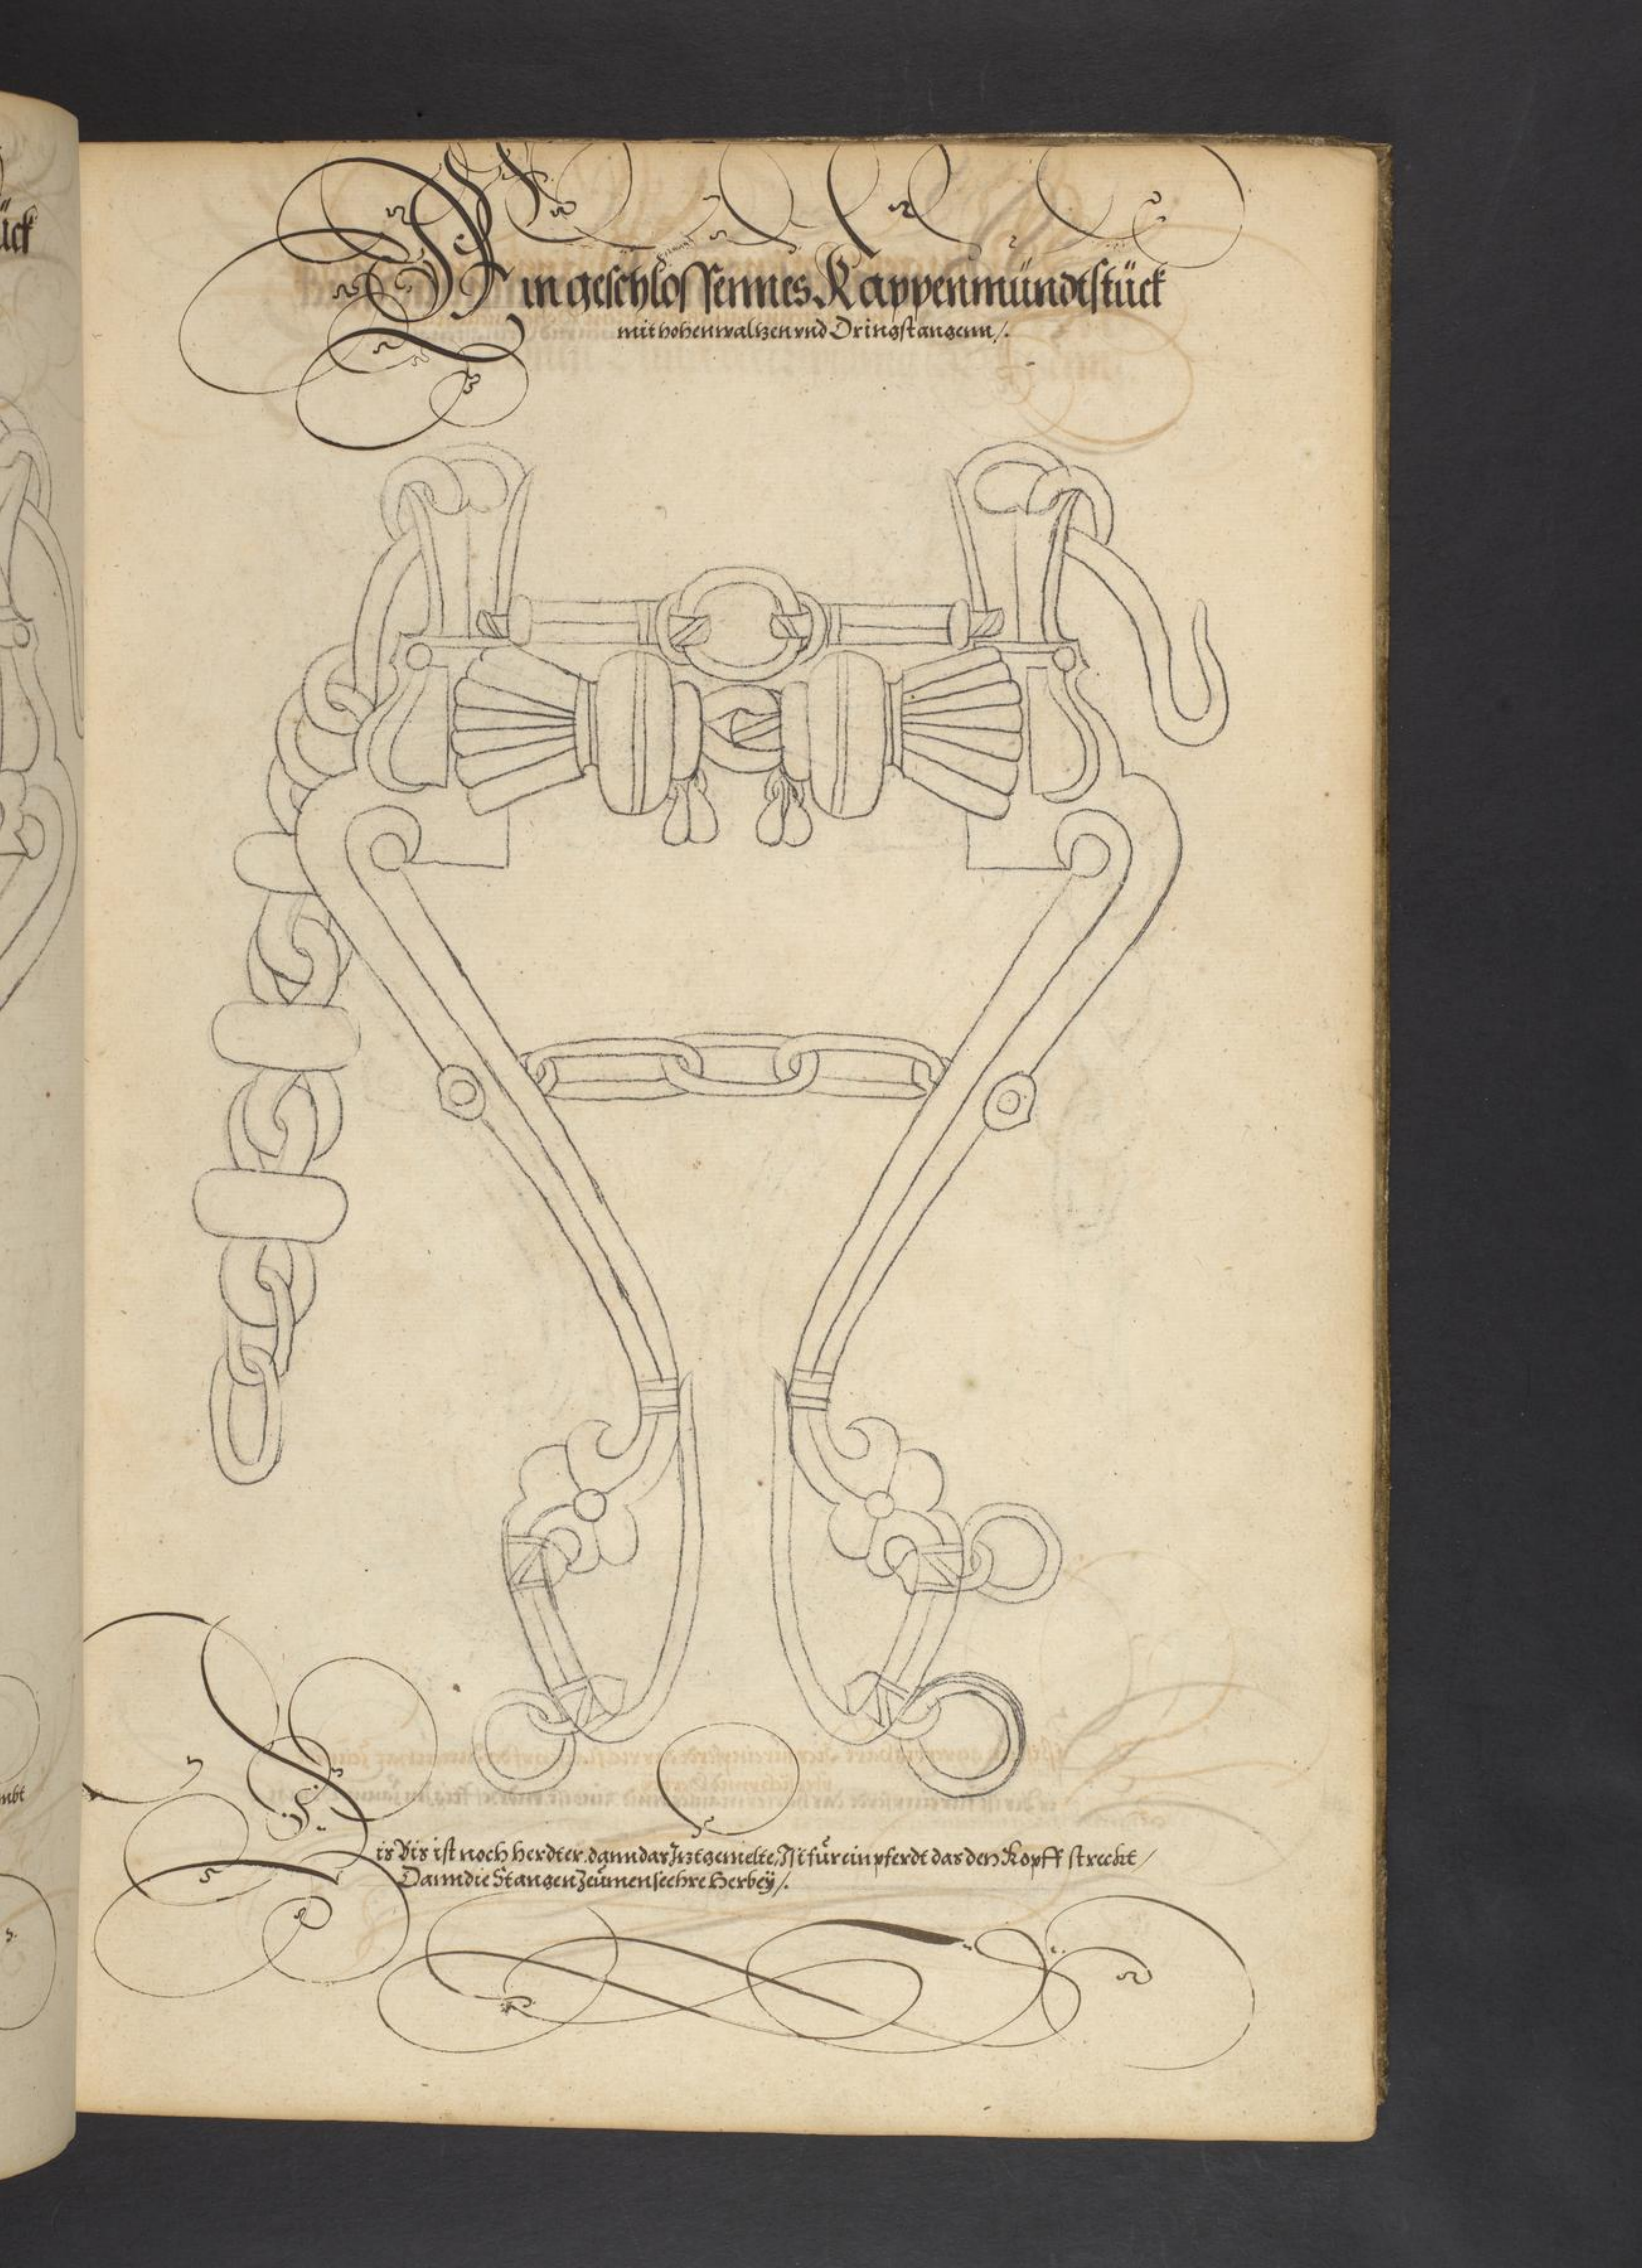 ück
Ein geschlossennes Kappenmündtstück
mit hohen waltzen vnd Dringstangenn /.
mbt
Dis Bis ist noch herdter dann das Jtzt gemelte, Jst für ein pferdt das den Kopff streckt /
Dann die Stangen Zeümen seehre Herbey /.